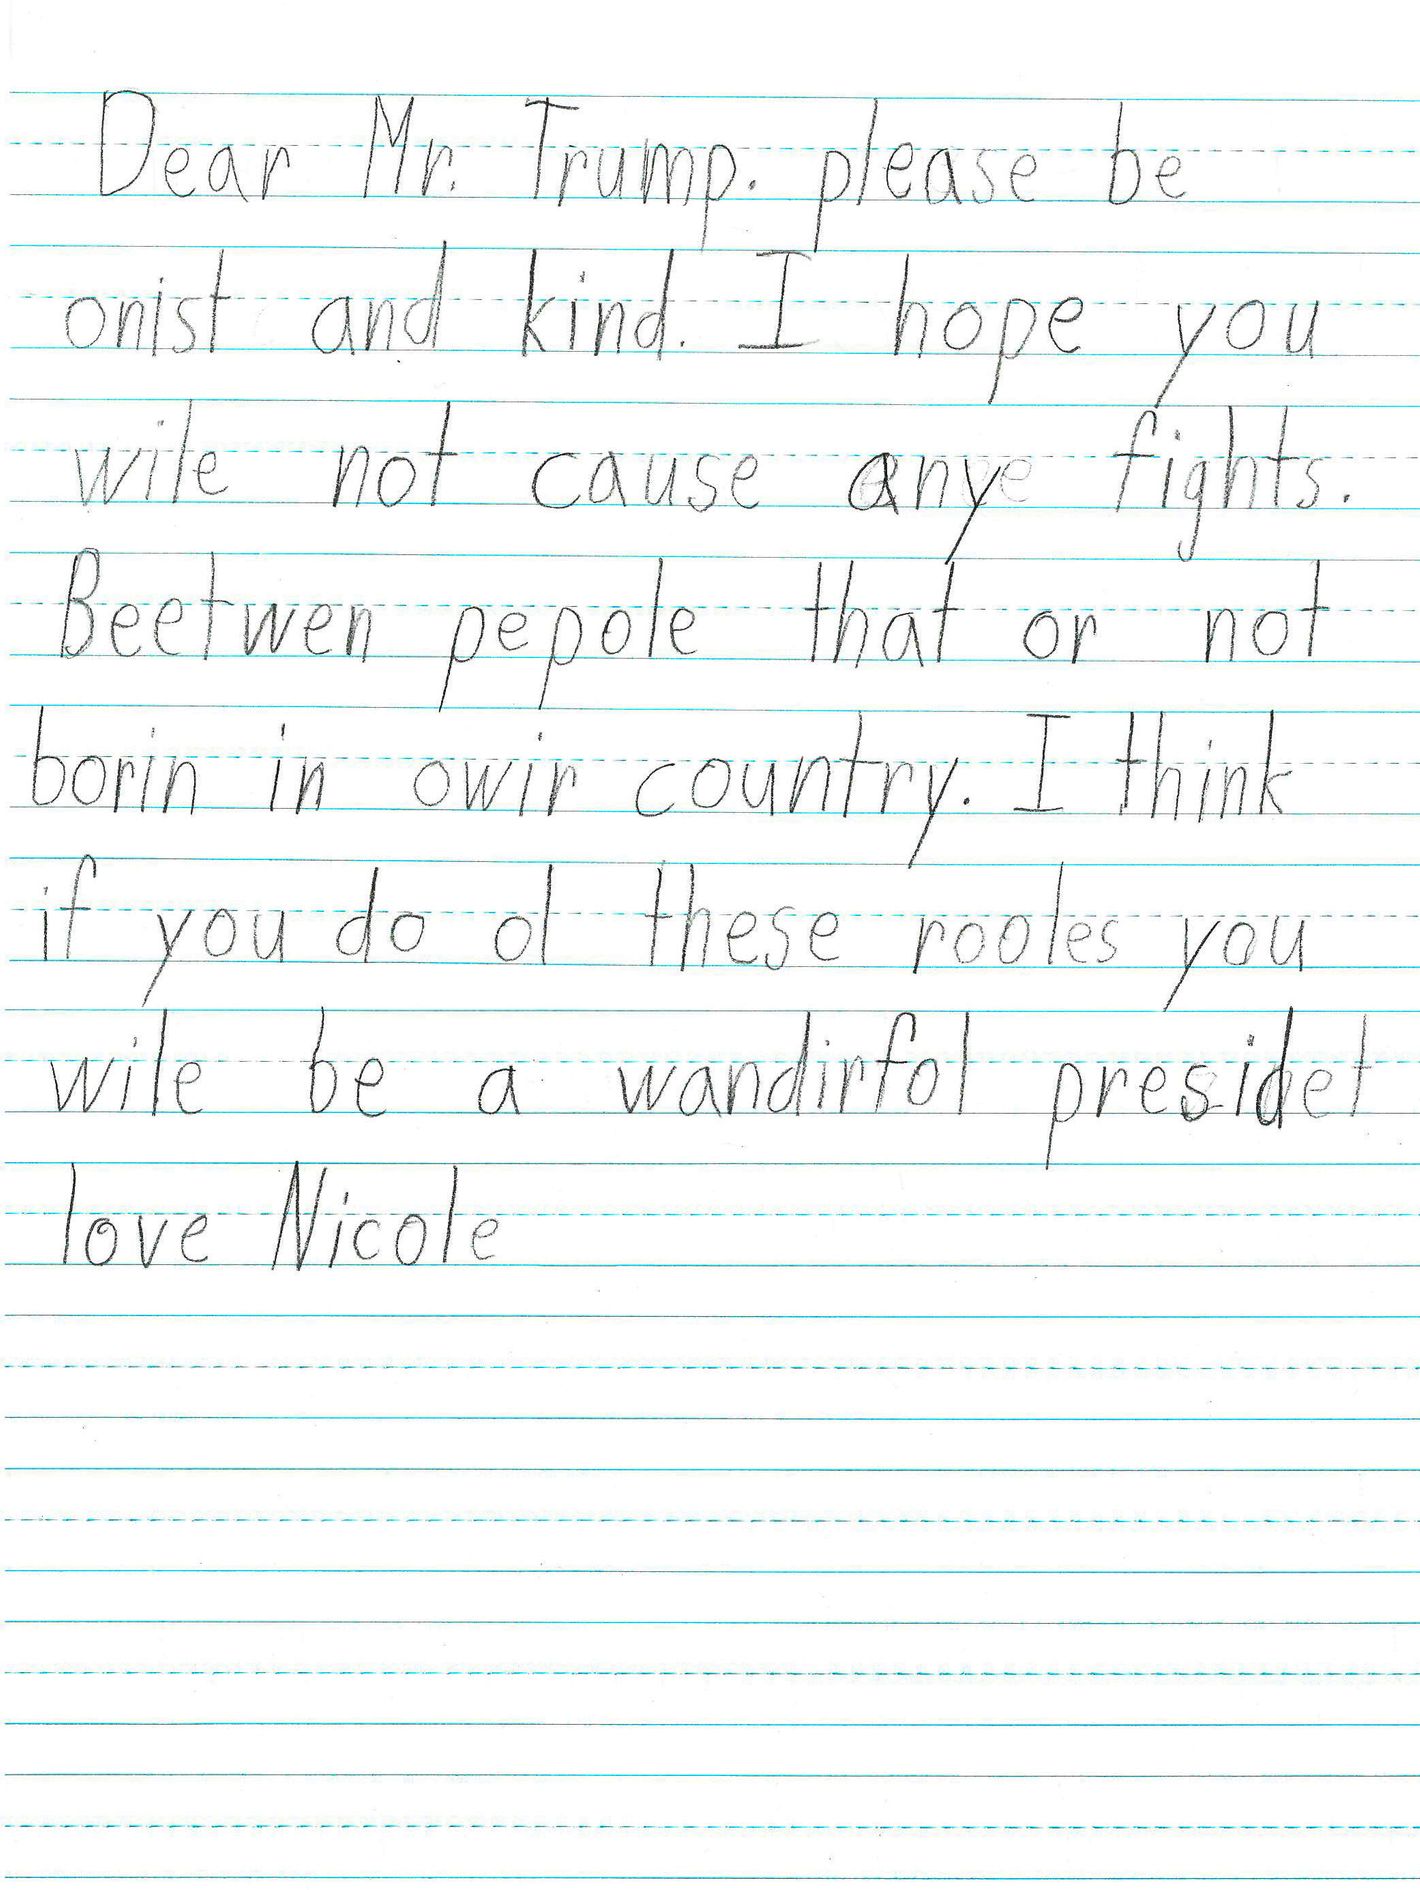 Dear Mr. Trump. please be
onist and kind. I hope you
wile not cause any fights.
Beetwen pepole that or not
borin in owir country. I think
if you do ol these rooles you
wile be a wandirfol presidet
love Nicole